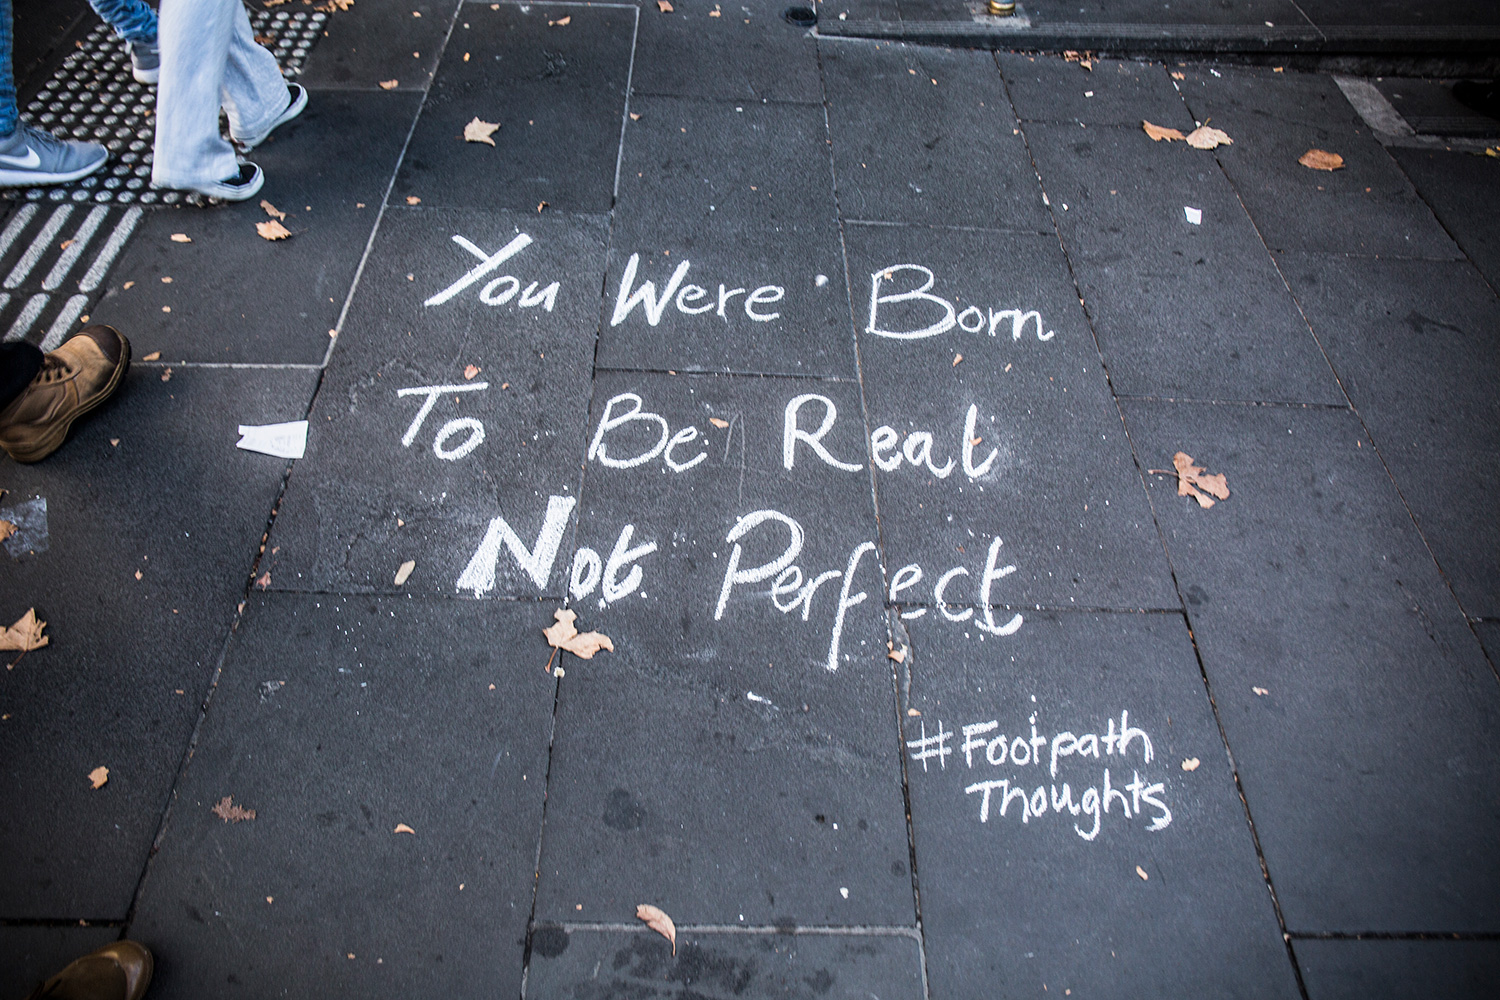 You Were Born
To Be Real
Not Perfect
#Footpath
Thoughts